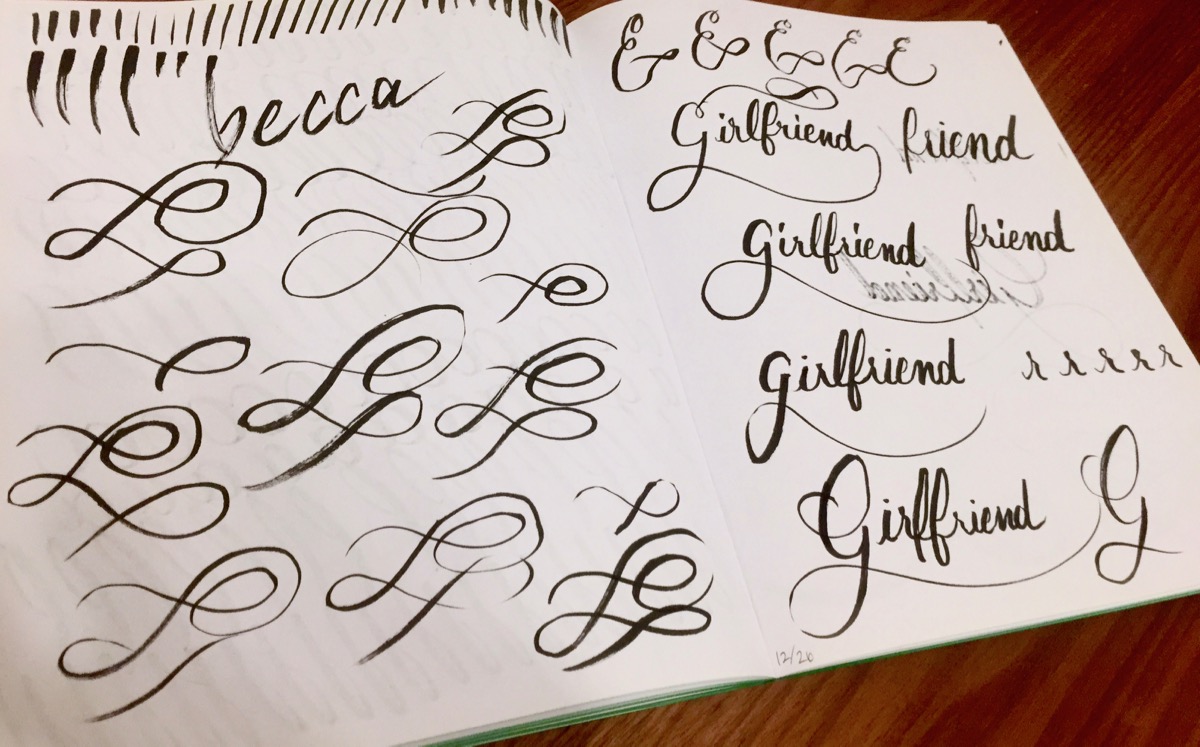 becca
& & & & &
Girlfriend friend
girlfriend friend
girlfriend r r r r r
Girlfriend G
12/26